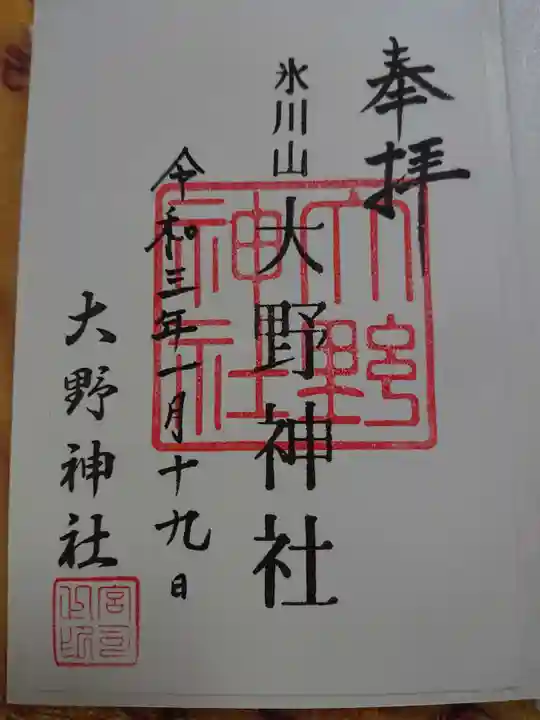 奉拝
氷川山
大野神社
令和三年一月十九日
大野神社
大野
神社